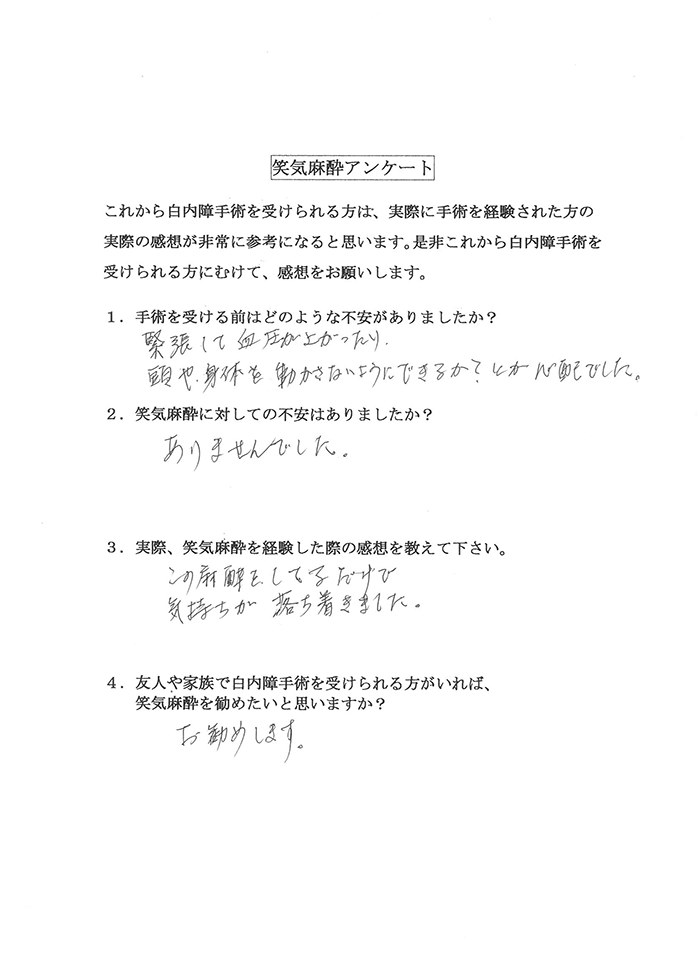 笑気麻酔アンケート
これから白内障手術を受けられる方は、実際に手術を経験された方の
実際の感想が非常に参考になると思います。是非これから白内障手術を
受けられる方にむけて、感想をお願いします。
1．手術を受ける前はどのような不安がありましたか？
緊張して血圧が上がったり、
頭や、身体を動かさないようにできるか？とか心配でした。
2．笑気麻酔に対しての不安はありましたか？
ありませんでした。
3．実際、笑気麻酔を経験した際の感想を教えて下さい。
この麻酔をしてるだけで
気持ちが落ち着きました。
4．友人や家族で白内障手術を受けられる方がいれば、
笑気麻酔を勧めたいと思いますか？
お勧めします。